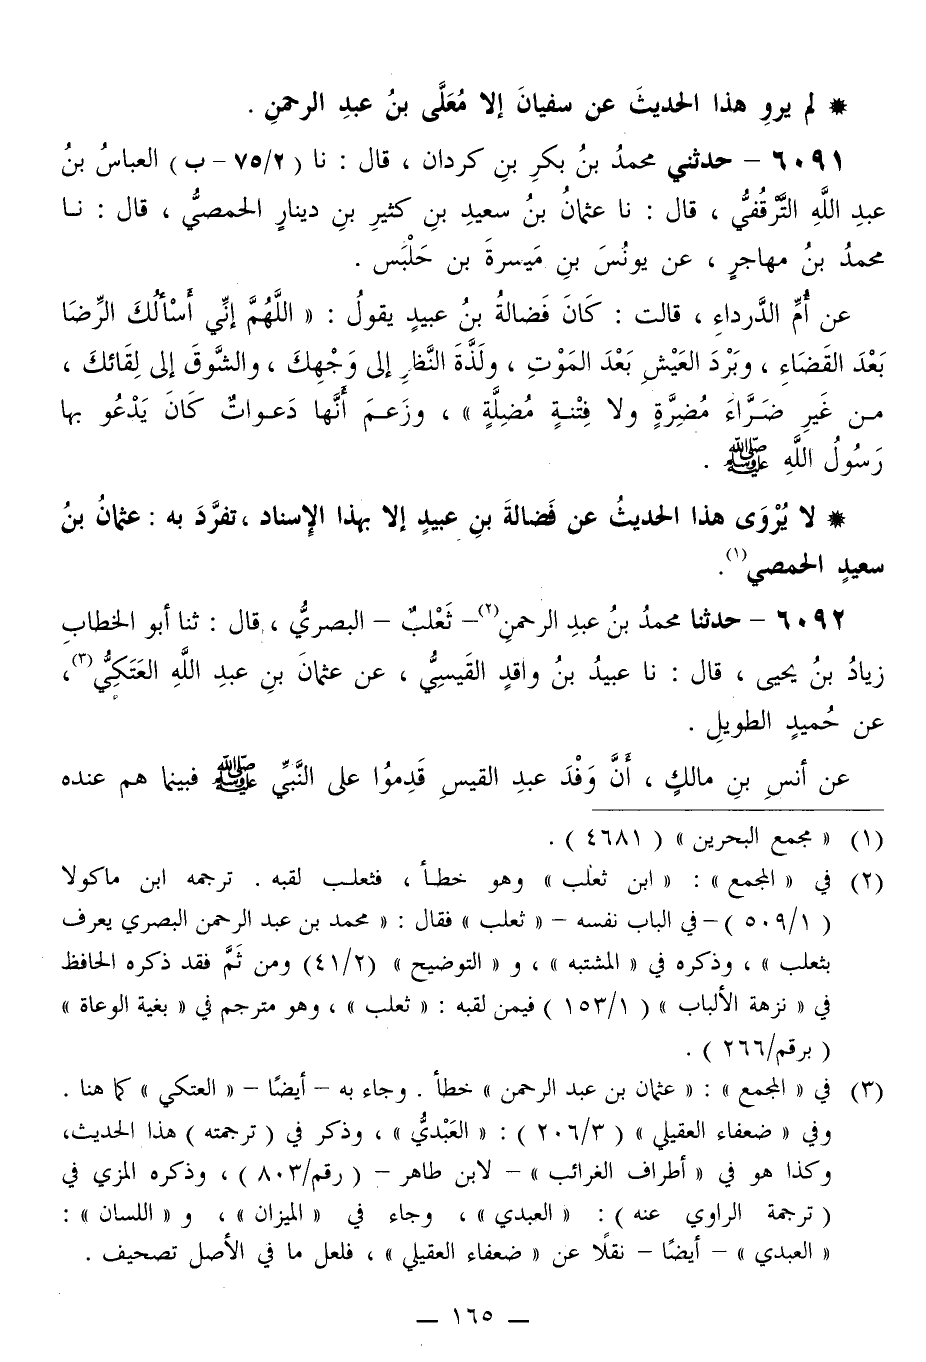 * لم يروِ هذا الحديثَ عن سفيانَ إلا مُعَلَّى بنُ عبدِ الرحمنِ .
٦٠٩١ – حدثني محمدُ بنُ بكرِ بنِ كردان ، قال : نا ( ٧٥/٢ – ب ) العباسُ بنُ
عبدِ اللَّهِ التَّرْقُفيُّ ، قال : نا عثمانُ بنُ سعيدِ بنِ كثيرِ بنِ دينارٍ الحمصيُّ ، قال : نا
محمدُ بنُ مهاجرٍ ، عن يونُسَ بنِ مَيسرةَ بن حَلْبَس .
عن أُمِّ الدَّرداءِ ، قالت : كَانَ فَضالةُ بنُ عبيدٍ يقولُ : « اللَّهُمَّ إنِّي أَسْأَلُكَ الرِّضَا
بَعْدَ القَضَاءِ ، وبَرْدَ العَيْشِ بَعْدَ المَوْتِ ، ولَذَّةَ النَّظَرِ إلى وَجْهِكَ ، والشَّوقَ إلى لِقَائكَ ،
من غَيرِ ضَرَّاءَ مُضِرَّةٍ ولا فِتْنةٍ مُضِلَّةٍ » ، وزَعمَ أَنَّها دَعواتٌ كَانَ يَدْعُو بها
رَسُولُ اللَّهِ ﷺ .
* لا يُرْوَى هذا الحديثُ عن فَضالةَ بنِ عبيدٍ إلا بهذا الإسناد ، تفرَّدَ به : عثمانُ بنُ
سعيدٍ الحمصي(١).
٦٠٩٢ – حدثنا محمدُ بنُ عبدِ الرحمنِ(٢)– ثَعْلبٌ – البصريُّ ، قال : ثنا أبو الخطابِ
زيادُ بنُ يحيى ، قال : نا عبيدُ بنُ واقدٍ القَيسِيُّ ، عن عثمانَ بنِ عبدِ اللَّهِ العَتَكِيُّ(٣)،
عن حُميدٍ الطويلِ .
عن أنسِ بنِ مالكٍ ، أَنَّ وَفْدَ عبدِ القيسِ قَدِموُا على النَّبيِّ ﷺ فبينما هم عنده
(١) « مجمع البحرين » ( ٤٦٨١ ) .
(٢) في « المجمع » : « ابن ثعلب » وهو خطأ ، فثعلب لقبه . ترجمه ابن ماكولا
( ٥٠٩/١ ) – في الباب نفسه – « ثعلب » فقال : « محمد بن عبد الرحمن البصري يعرف
بثعلب » ، وذكره في « المشتبه » ، و « التوضيح » (٤١/٢) ومن ثَمَّ فقد ذكره الحافظ
في « نزهة الألباب » ( ١٥٣/١ ) فيمن لقبه : « ثعلب » ، وهو مترجم في « بغية الوعاة »
( برقم/٢٦٦ ) .
(٣) في « المجمع » : « عثمان بن عبد الرحمن » خطأ . وجاء به – أيضًا – « العتكي » كما هنا .
وفي « ضعفاء العقيلي » ( ٢٠٦/٣ ) : « العَبْديُّ » ، وذكر في ( ترجمته ) هذا الحديث،
وكذا هو في « أطراف الغرائب » – لابن طاهر – ( رقم/٨٠٣ ) ، وذكره المزي في
( ترجمة الراوي عنه ) : « العبدي » ، وجاء في « الميزان » ، و « اللسان » :
« العبدي » – أيضًا – نقلًا عن « ضعفاء العقيلي » ، فلعل ما في الأصل تصحيف .
— ١٦٥ —